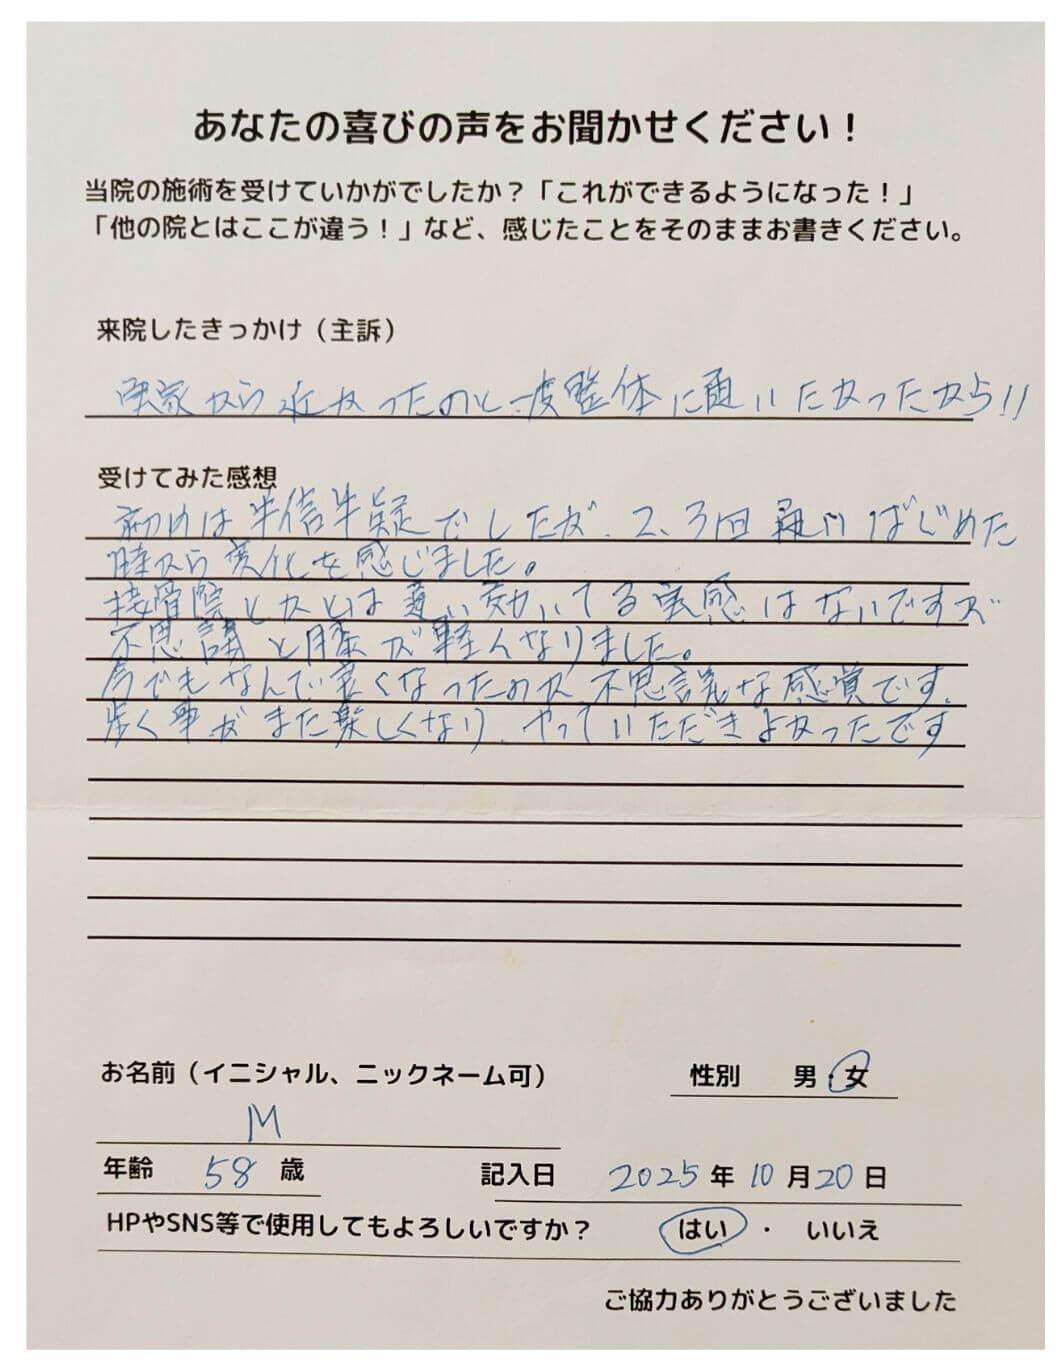 あなたの喜びの声をお聞かせください！
当院の施術を受けていかがでしたか？「これができるようになった！」
「他の院とはここが違う！」など、感じたことをそのままお書きください。
来院したきっかけ（主訴）
実家から近かったのと一度整体に通いたかったから!!
受けてみた感想
初めは半信半疑でしたが、2、3回通いはじめた
時から変化を感じました。
接骨院とかとは違い効いてる実感はないですが
不思議と膝が軽くなりました。
今でもなんで良くなったのか不思議な感覚です、
歩く事がまた楽しくなり、やっていただきよかったです
お名前（イニシャル、ニックネーム可）
性別 男・女
M
年齢 58 歳
記入日 2025年 10月20日
HPやSNS等で使用してもよろしいですか？ はい ・ いいえ
ご協力ありがとうございました